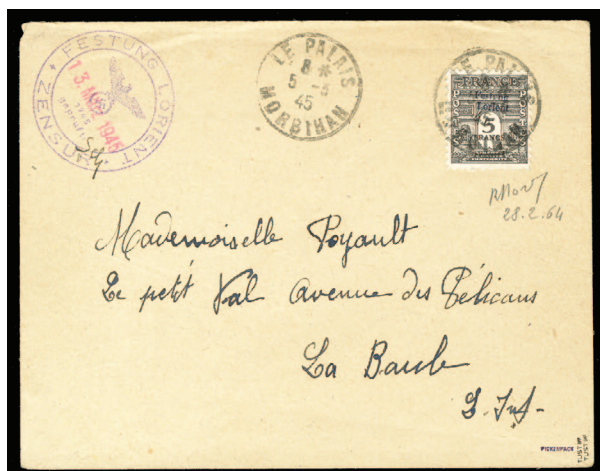 FESTUNG LORIENT
ZENSUR
13. MRZ. 1945
LE PALAIS
8 *
5 -3
45
MORBIHAN
LE PALAIS
FRANCE
Festung
Lorient
POSTES
5
FRANCS
28.2.64
Mademoiselle Poyault
Le petit Val avenue des Pélicans
La Baule
L. Inf-
PICKENPACK
TUST
TUST